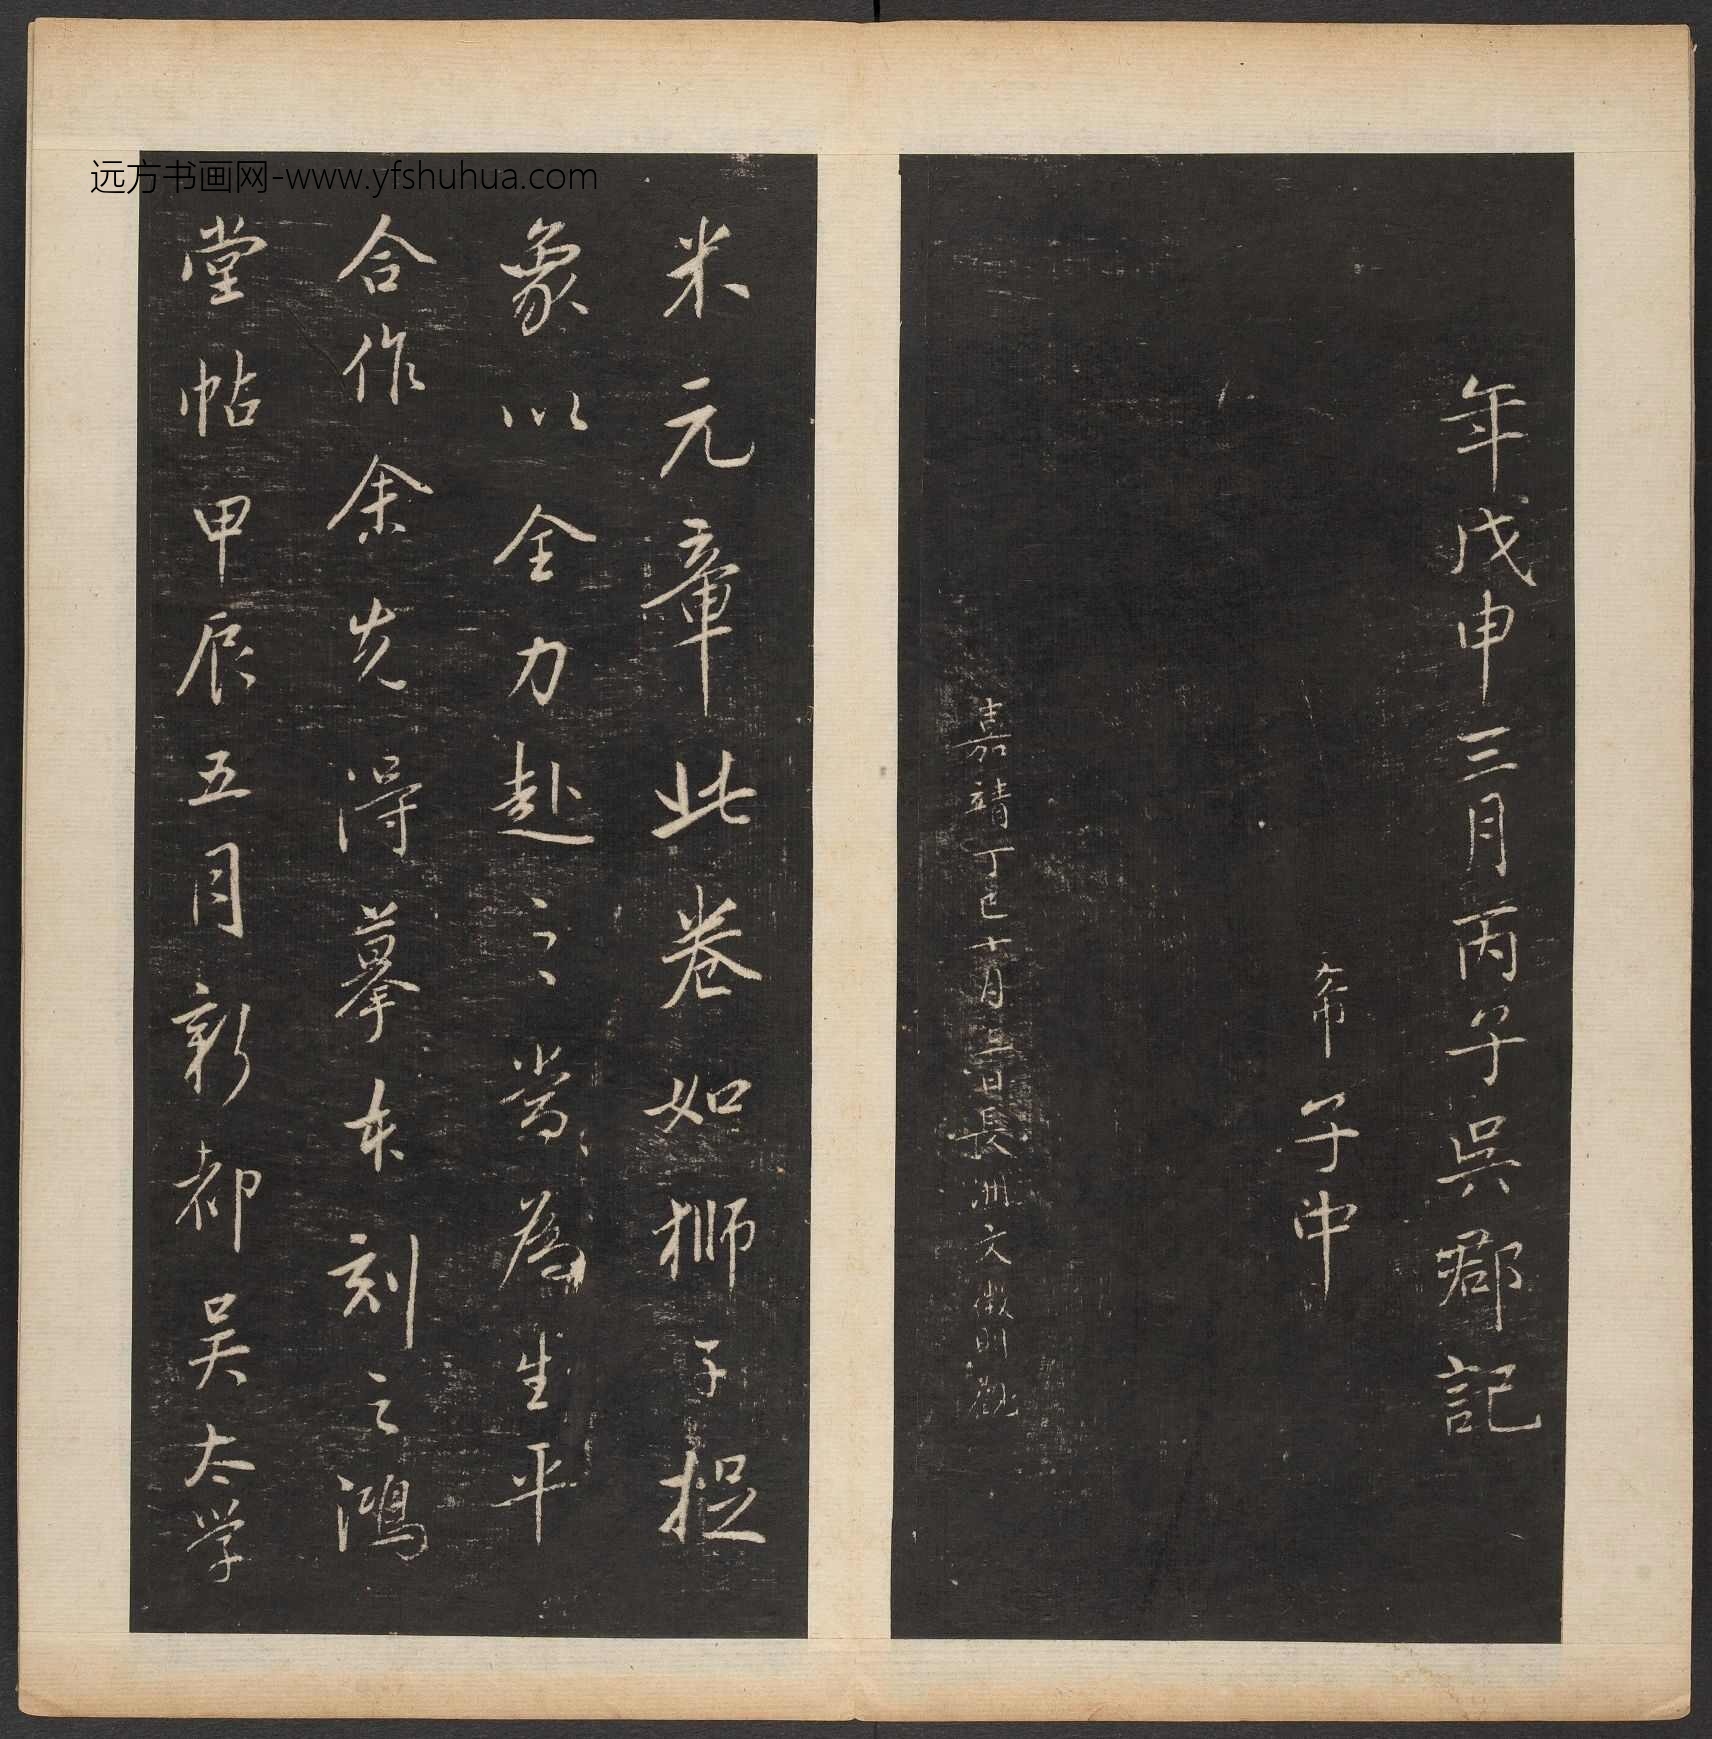 远方书画网-www.yfshuhua.com
年戊申三月丙子吳郡記
希子中
嘉靖丁巳十月三日長洲文徵明觀
米元章此卷如獅子捉
象以全力赴之當爲生平
合作余先得摹本刻之鴻
堂帖甲辰五月新都吴太学